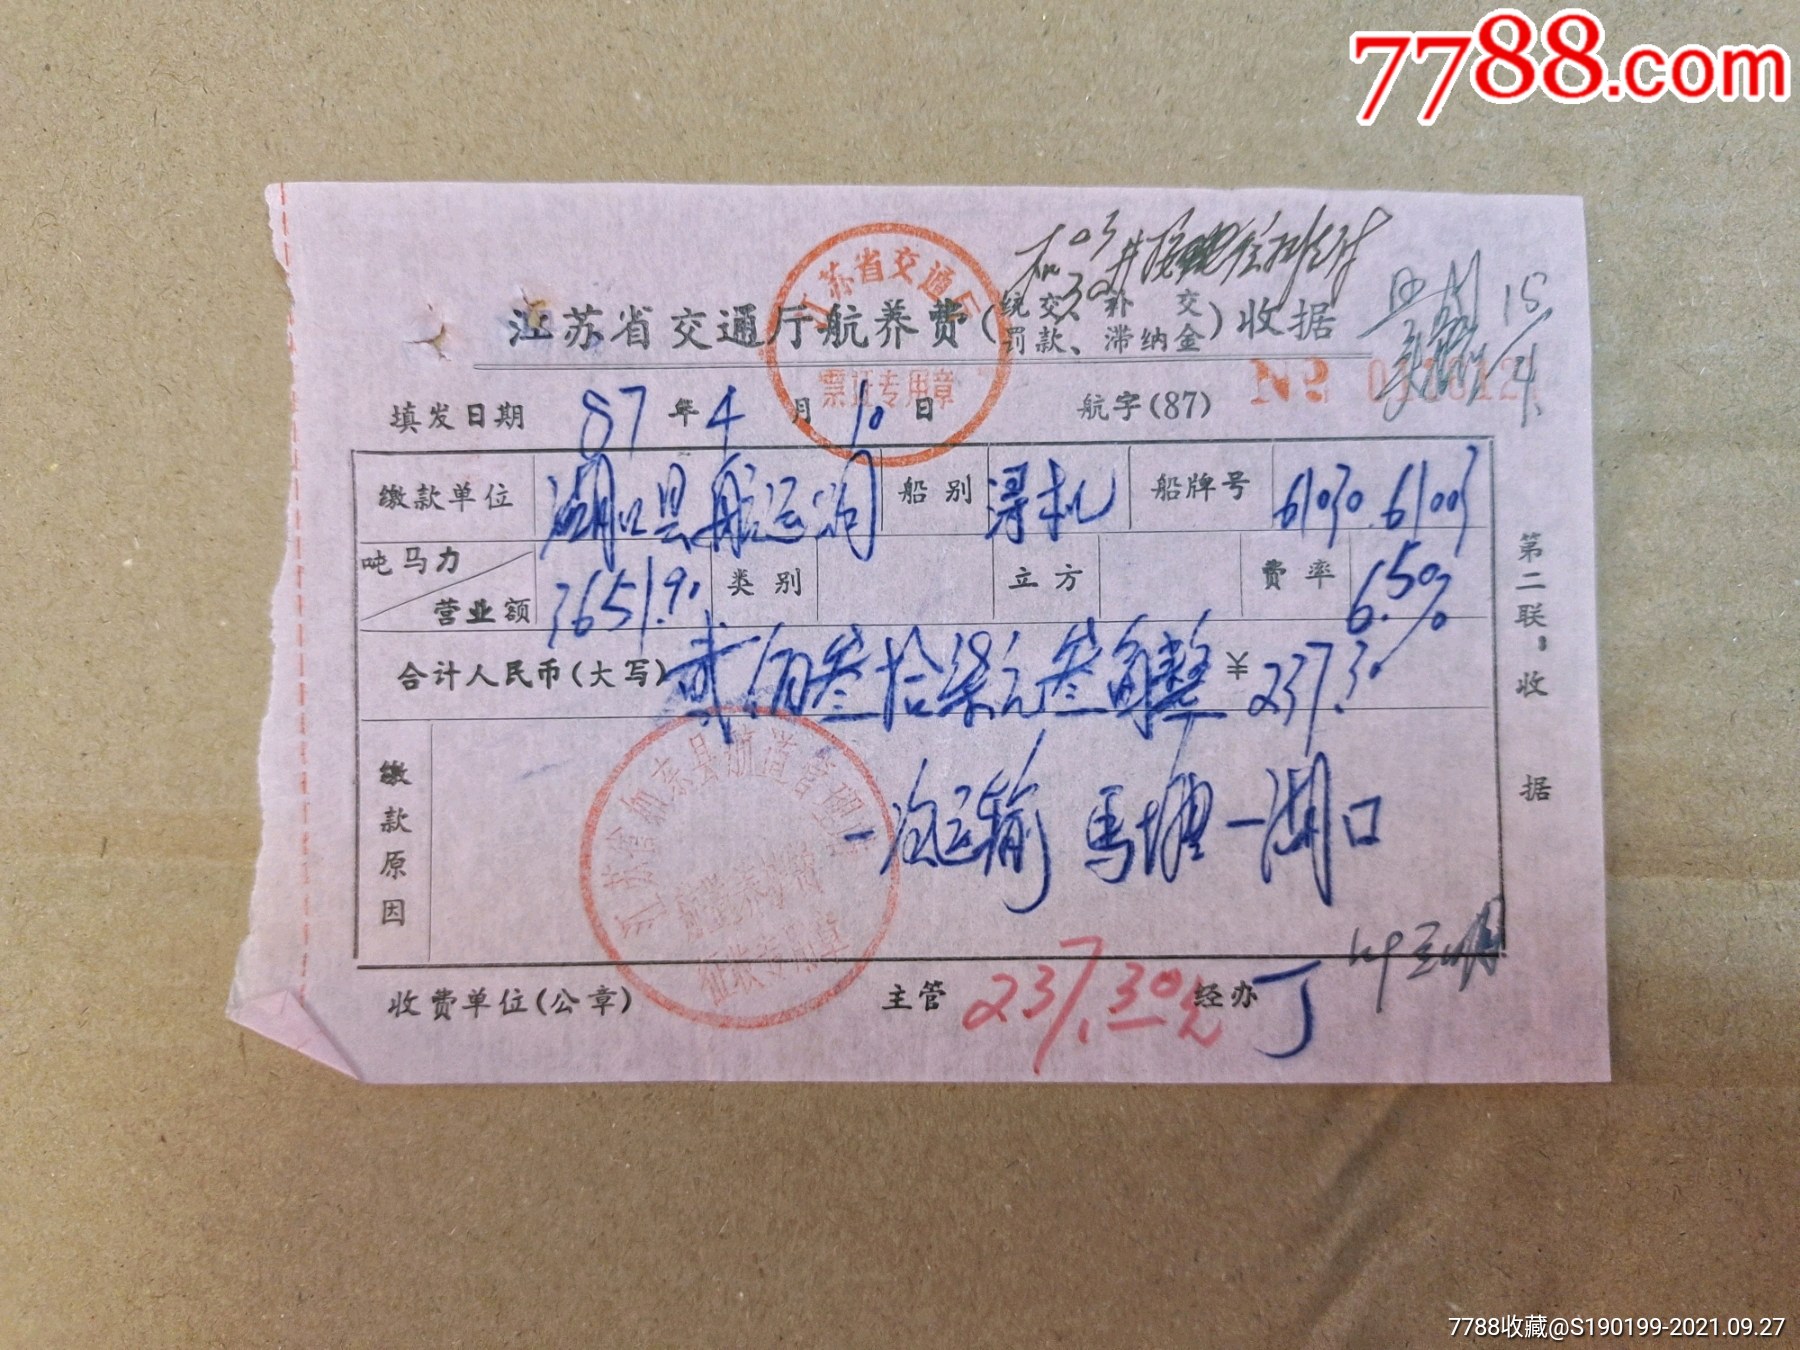 7788.com
江苏省交通厅航养费(统交、补交罚款、滞纳金)收据
江苏省交通厅
票证专用章
填发日期 87年4月10日 航字(87) №
缴款单位 湖口县航运公司 船别 浔机 船牌号 61030.61003
吨马力 营业额 3651.90 类别 立方 费率 6.5%
合计人民币(大写) 贰佰叁拾柒元叁角整 ¥237.30
缴款原因 一次运输 马塘一湖口
江苏省如东县航道管理
征收专用章
收费单位(公章) 主管 237.30元 经办 丁
第二联:收据
7788收藏@S190199-2021.09.27